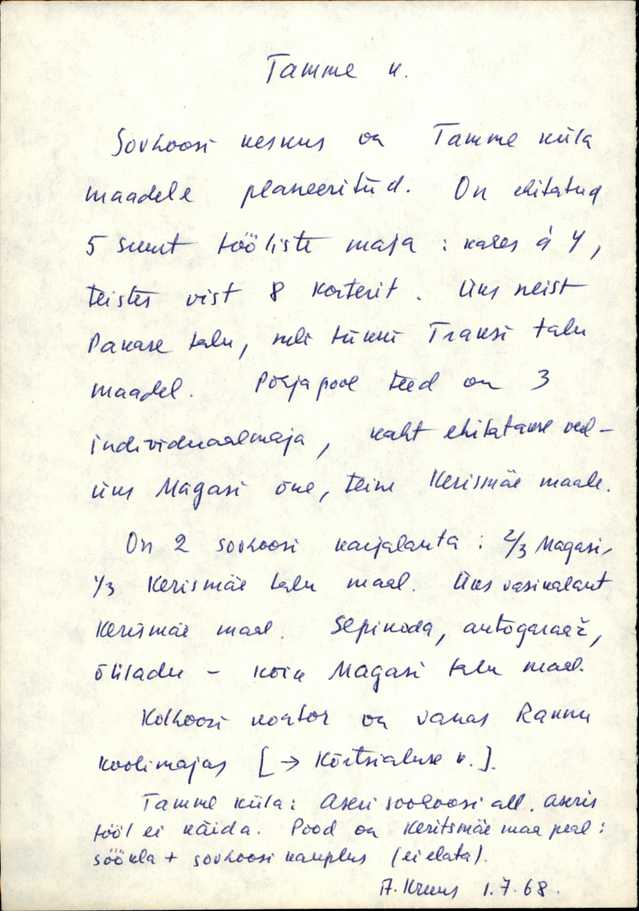 Tamme k.
Sovhoosi keskus on Tamme küla
maadele planeeritud. On ehitatud
5 suurt tööliste maja : kahes á 4,
teistes vist 8 korterit. Üks neist
Pakase talu, neli tükki Transi talu
maadel. Põhja pool teed on 3
individuaalmaja, kaht ehitatakse veel -
üks Magasi õue, teine Kerismäe maale.
On 2 sovhoosi karjalauta : 2/3 Magasi,
1/3 Kerismäe talu maal. Üks vasikalaut
Kerismäe maal. Sepikoda, autogaraaž,
õliladu - kõik Magasi talu maal.
Kolhoosi kontor on vanas Rannu
koolimajas [→ Kõrtsialuse k.].
Tamme küla: Aseri sovhoosi all. Aseris
tööl ei käida. Pood on Keritsmäe maa peal :
söökla + sovhoosi kauplus (ei elata).
A. Kruus 1.7.68.